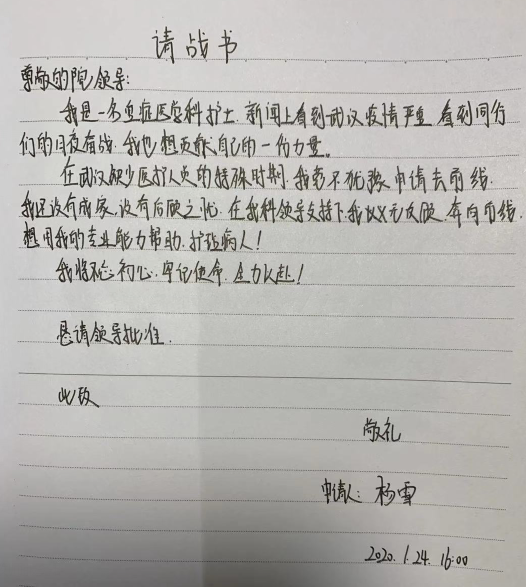 请战书
尊敬的院领导:
我是一名重症医学科护士 新闻上看到武汉疫情严重 看到同行
们的日夜奋战, 我也想贡献自己的一份力量。
在武汉缺少医护人员的特殊时期, 我毫不犹豫申请去前线.
我还没有成家, 没有后顾之忧. 在我科领导支持下, 我义无反顾, 奔向前线.
想用我的专业能力帮助. 护理病人!
我将不忘初心, 牢记使命, 全力以赴!
恳请领导批准.
此致
敬礼
申请人: 杨雪
2020. 1. 24. 16:00